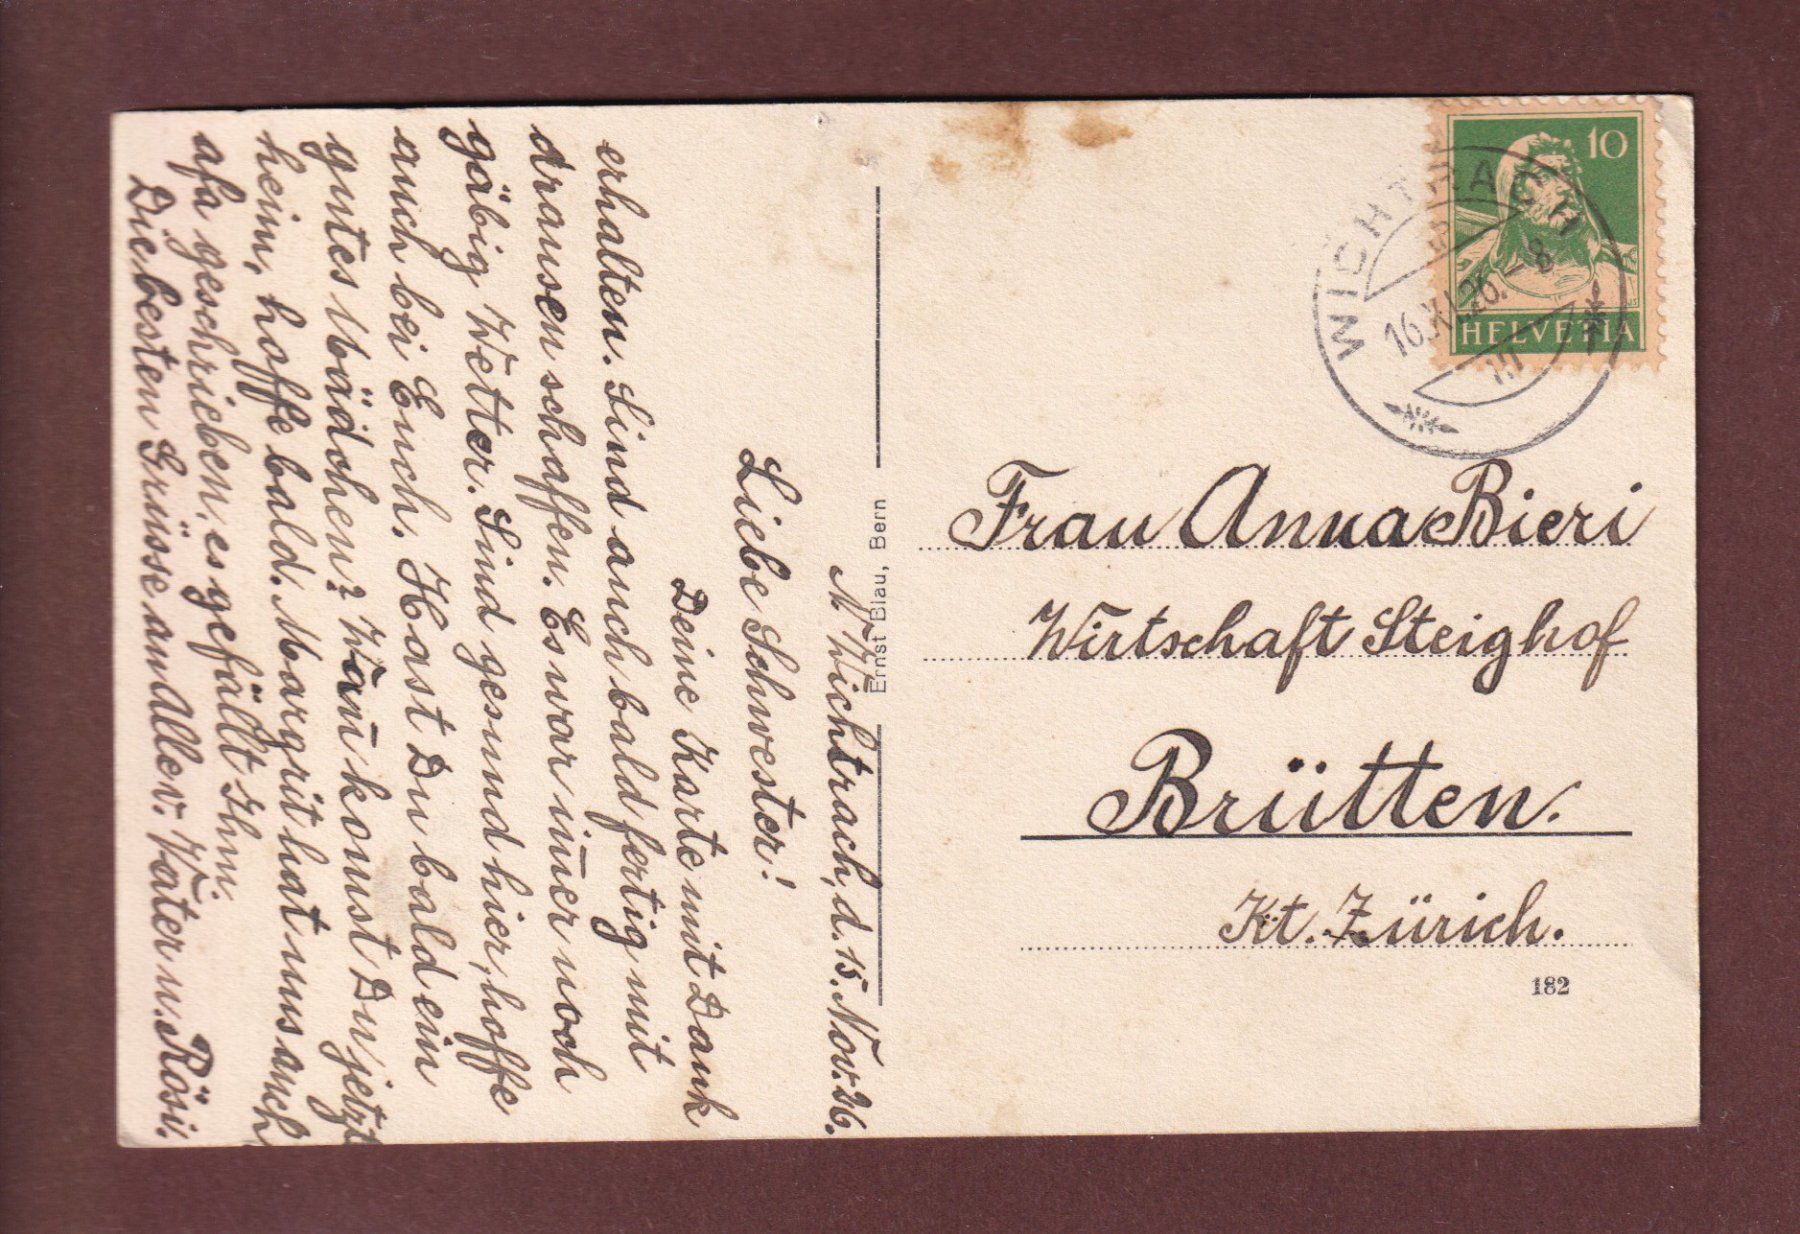 N' Wichtrach, d. 15. Nov. 26.
Liebe Schwester!
Deine Karte mit Dank
erhalten. Sind auch bald fertig mit
drausen schaffen. Es war im̅er noch
gäbig Wetter. Sind gesund hier, hoffe
auch bei Euch. Hast Du bald ein
gutes Mädchen? Wan̅ komst Du jetzt
heim, hoffe bald. Margrit hat uns auch
geschrieben, es gefällt Ihm.
Die besten Grüsse an Alle v. Vater u. Rösi.
Ernst Blau, Bern
10
HELVETIA
WICHTRACH
16.XI.26. – 8
Frau Anna Bieri
Wirtschaft Steighof
Brütten.
Kt. Zürich.
182